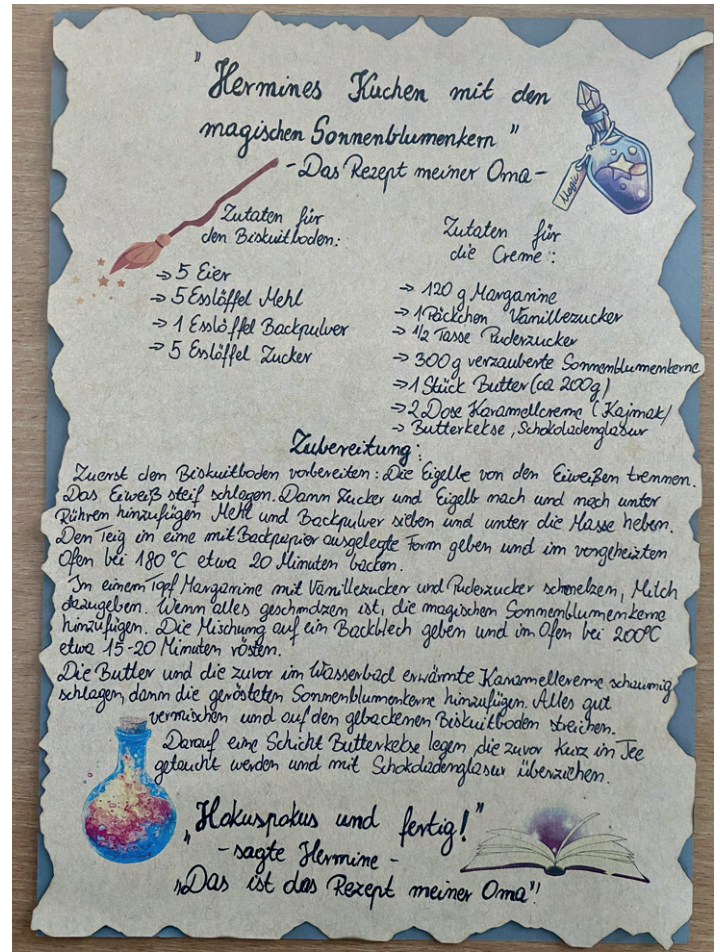 "Hermines Kuchen mit den
magischen Sonnenblumenkern"
-Das Rezept meiner Oma-
Magic
Zutaten für
den Biskuitboden:
→ 5 Eier
→ 5 Esslöffel Mehl
→ 1 Esslöffel Backpulver
→ 5 Esslöffel Zucker
Zutaten für
die Creme:
→ 120 g Margarine
→ 1 Päckchen Vanillezucker
→ 1/2 Tasse Puderzucker
→ 300 g verzauberte Sonnenblumenkerne
→ 1 Stück Butter (ca 200g)
→ 2 Dose Karamellcreme (Kajmak/
→ Butterkekse, Schokoladenglasur
Zubereitung:
Zuerst den Biskuitboden vorbereiten: Die Eigelbe von den Eiweißen trennen.
Das Eiweiß steif schlagen. Dann Zucker und Eigelb nach und nach unter
Rühren hinzufügen Mehl und Backpulver sieben und unter die Masse heben.
Den Teig in eine mit Backpapier ausgelegte Form geben und im vorgeheizten
Ofen bei 180 °C etwa 20 Minuten backen.
In einem Topf Margarine mit Vanillezucker und Puderzucker schmelzen, Milch
dazugeben. Wenn alles geschmolzen ist, die magischen Sonnenblumenkerne
hinzufügen. Die Mischung auf ein Backblech geben und im Ofen bei 200°C
etwa 15-20 Minuten rösten.
Die Butter und die zuvor im Wasserbad erwärmte Karamellcreme schaumig
schlagen, dann die gerösteten Sonnenblumenkerne hinzufügen. Alles gut
vermischen und auf den gebackenen Biskuitboden streichen.
Darauf eine Schicht Butterkekse legen, die zuvor kurz in Tee
getaucht werden und mit Schokoladenglasur überziehen.
„Hokuspokus und fertig!"
-sagte Hermine-
„Das ist das Rezept meiner Oma"!